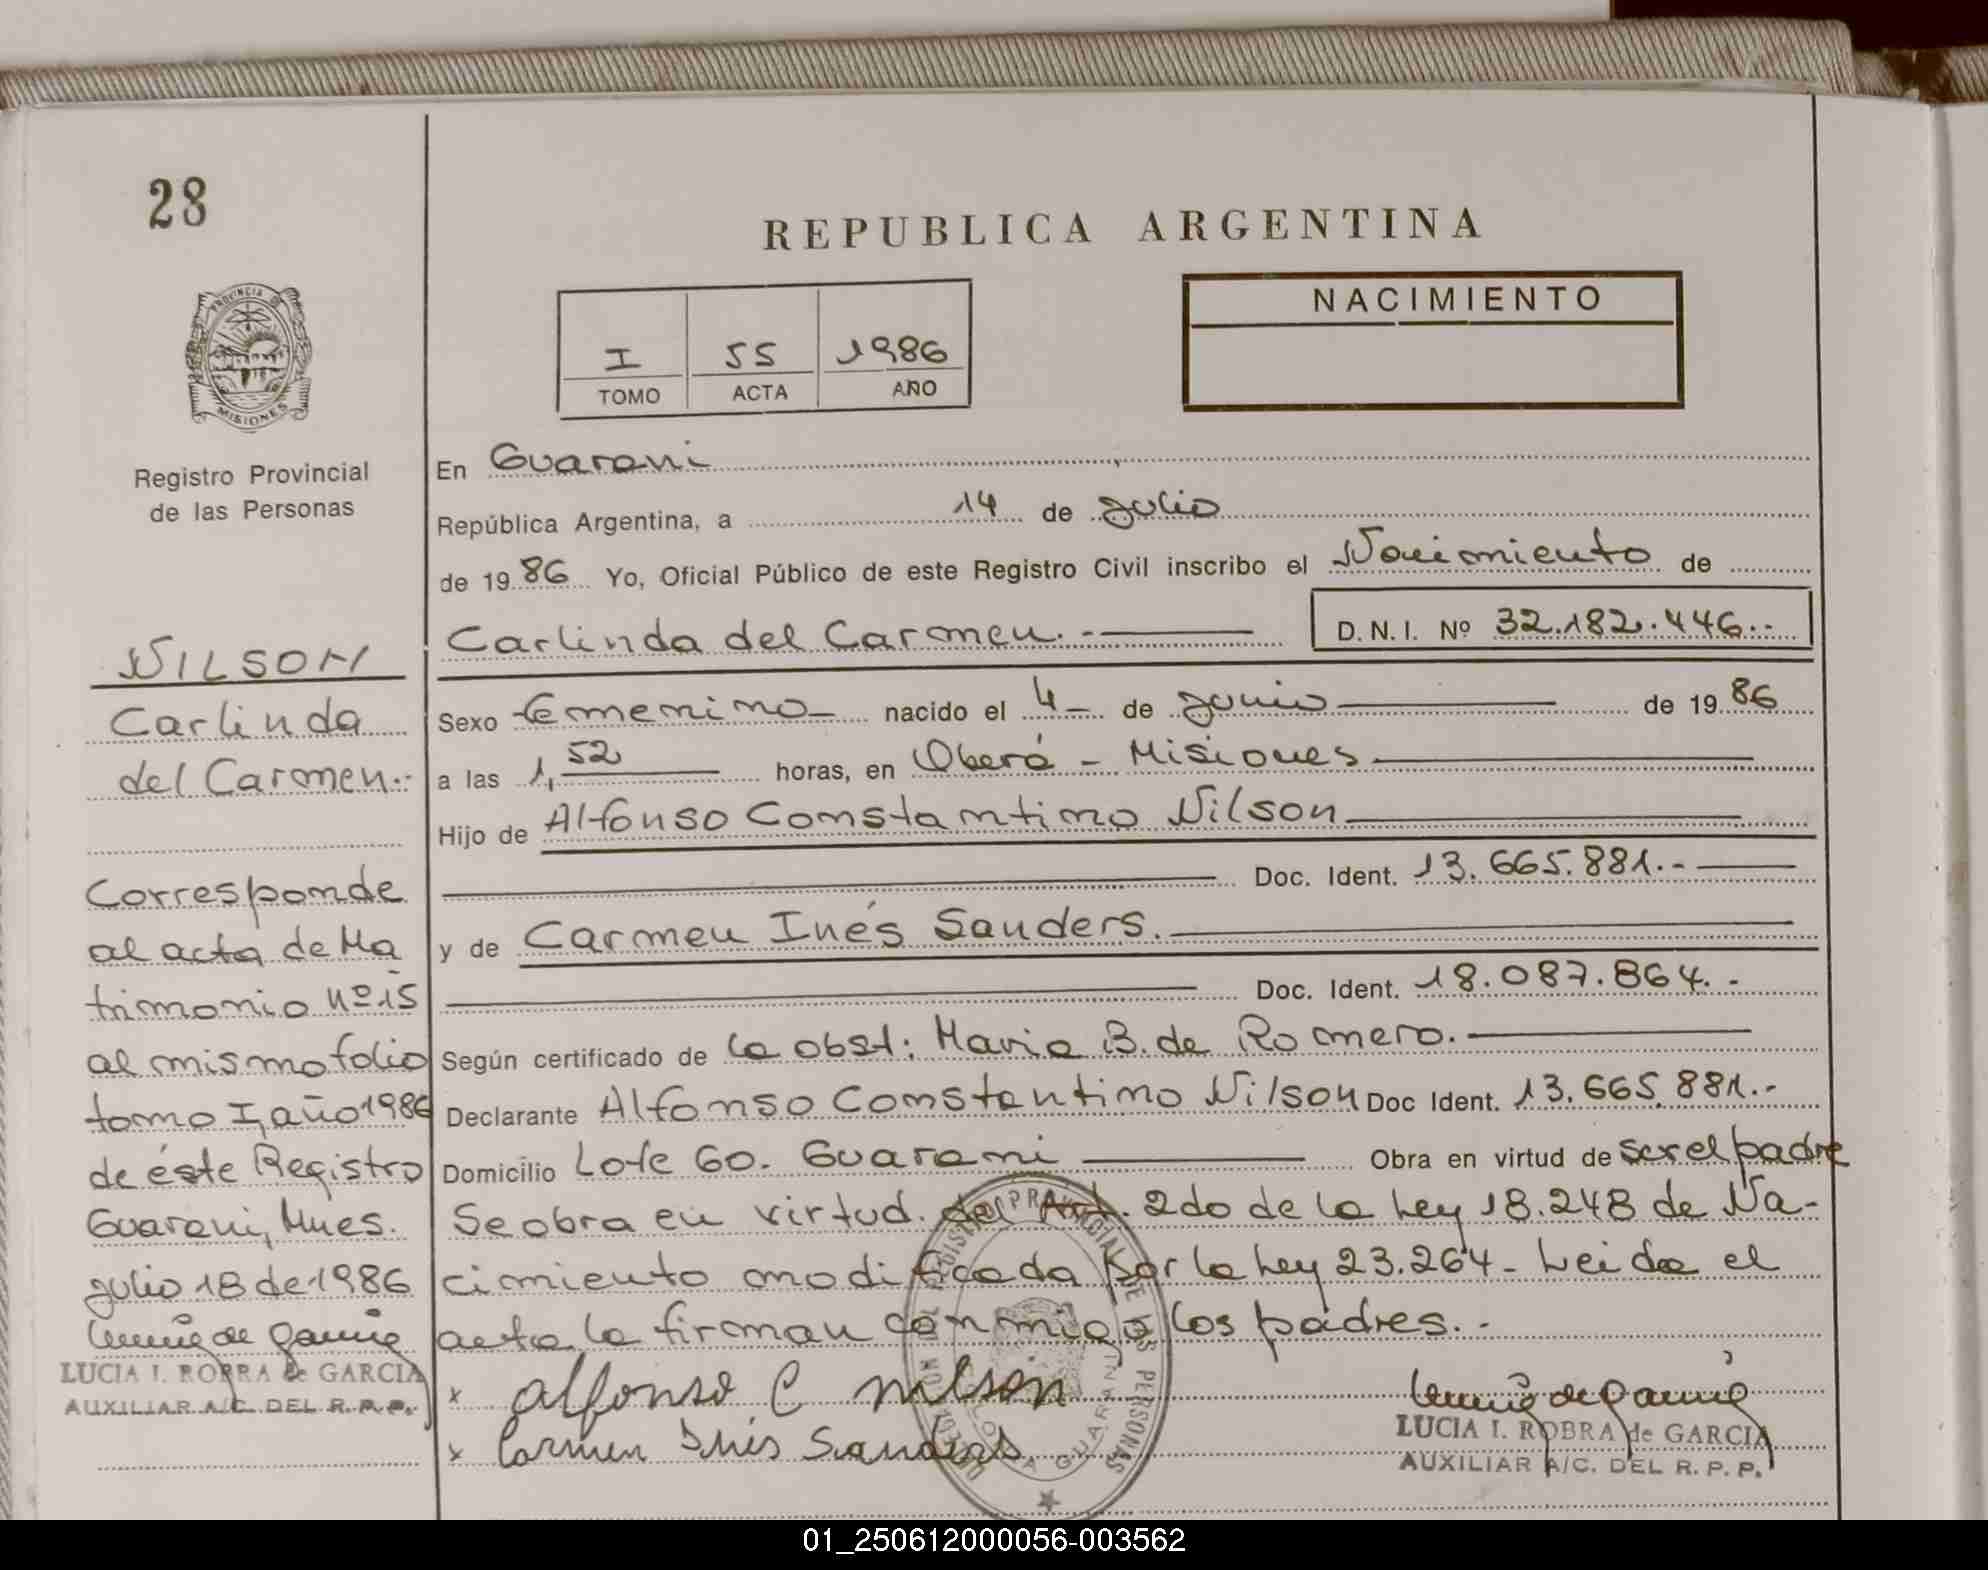 28
REPUBLICA ARGENTINA
PROVINCIA DE
MISIONES
Registro Provincial
de las Personas
I 55 1986
TOMO ACTA AÑO
NACIMIENTO
En Guarani
República Argentina, a 14 de julio
de 19 86 Yo, Oficial Público de este Registro Civil inscribo el Nacimiento de
Carlinda del Carmen.-
D.N.I. Nº 32.182.446.-
Sexo femenino nacido el 4 de junio de 19 86
a las 1,52 horas, en Oberá - Misiones
Hijo de Alfonso Constantino Nilson
Doc. Ident. 13.665.881.-
y de Carmen Inés Sanders.
Doc. Ident. 18.087.864.-
Según certificado de la obst: Maria B. de Romero.
Declarante Alfonso Constantino Nilson Doc Ident. 13.665.881.-
Domicilio Lote 60. Guarani Obra en virtud de ser el padre
Se obra en virtud del Art. 2do de la Ley 18.248 de Na-
cimiento modificada por la Ley 23.264 - Leida el
acta la firman conmigo los padres.-
x alfonso C nilson
x Carmen Inés Sanders
LUCIA I. ROBRA de GARCIA
AUXILIAR A/C. DEL R. P. P.
NILSON
Carlinda
del Carmen.-
Corresponde
al acta de Ma
trimonio Nº 15
al mismo folio
tomo I, año 1986
de éste Registro
Guarani, Mnes.
julio 18 de 1986
LUCIA I. ROBRA de GARCIA
AUXILIAR A/C. DEL R. P. P.
PROVINCIAL DE LAS PERSONAS
GUARANI
01_250612000056-003562